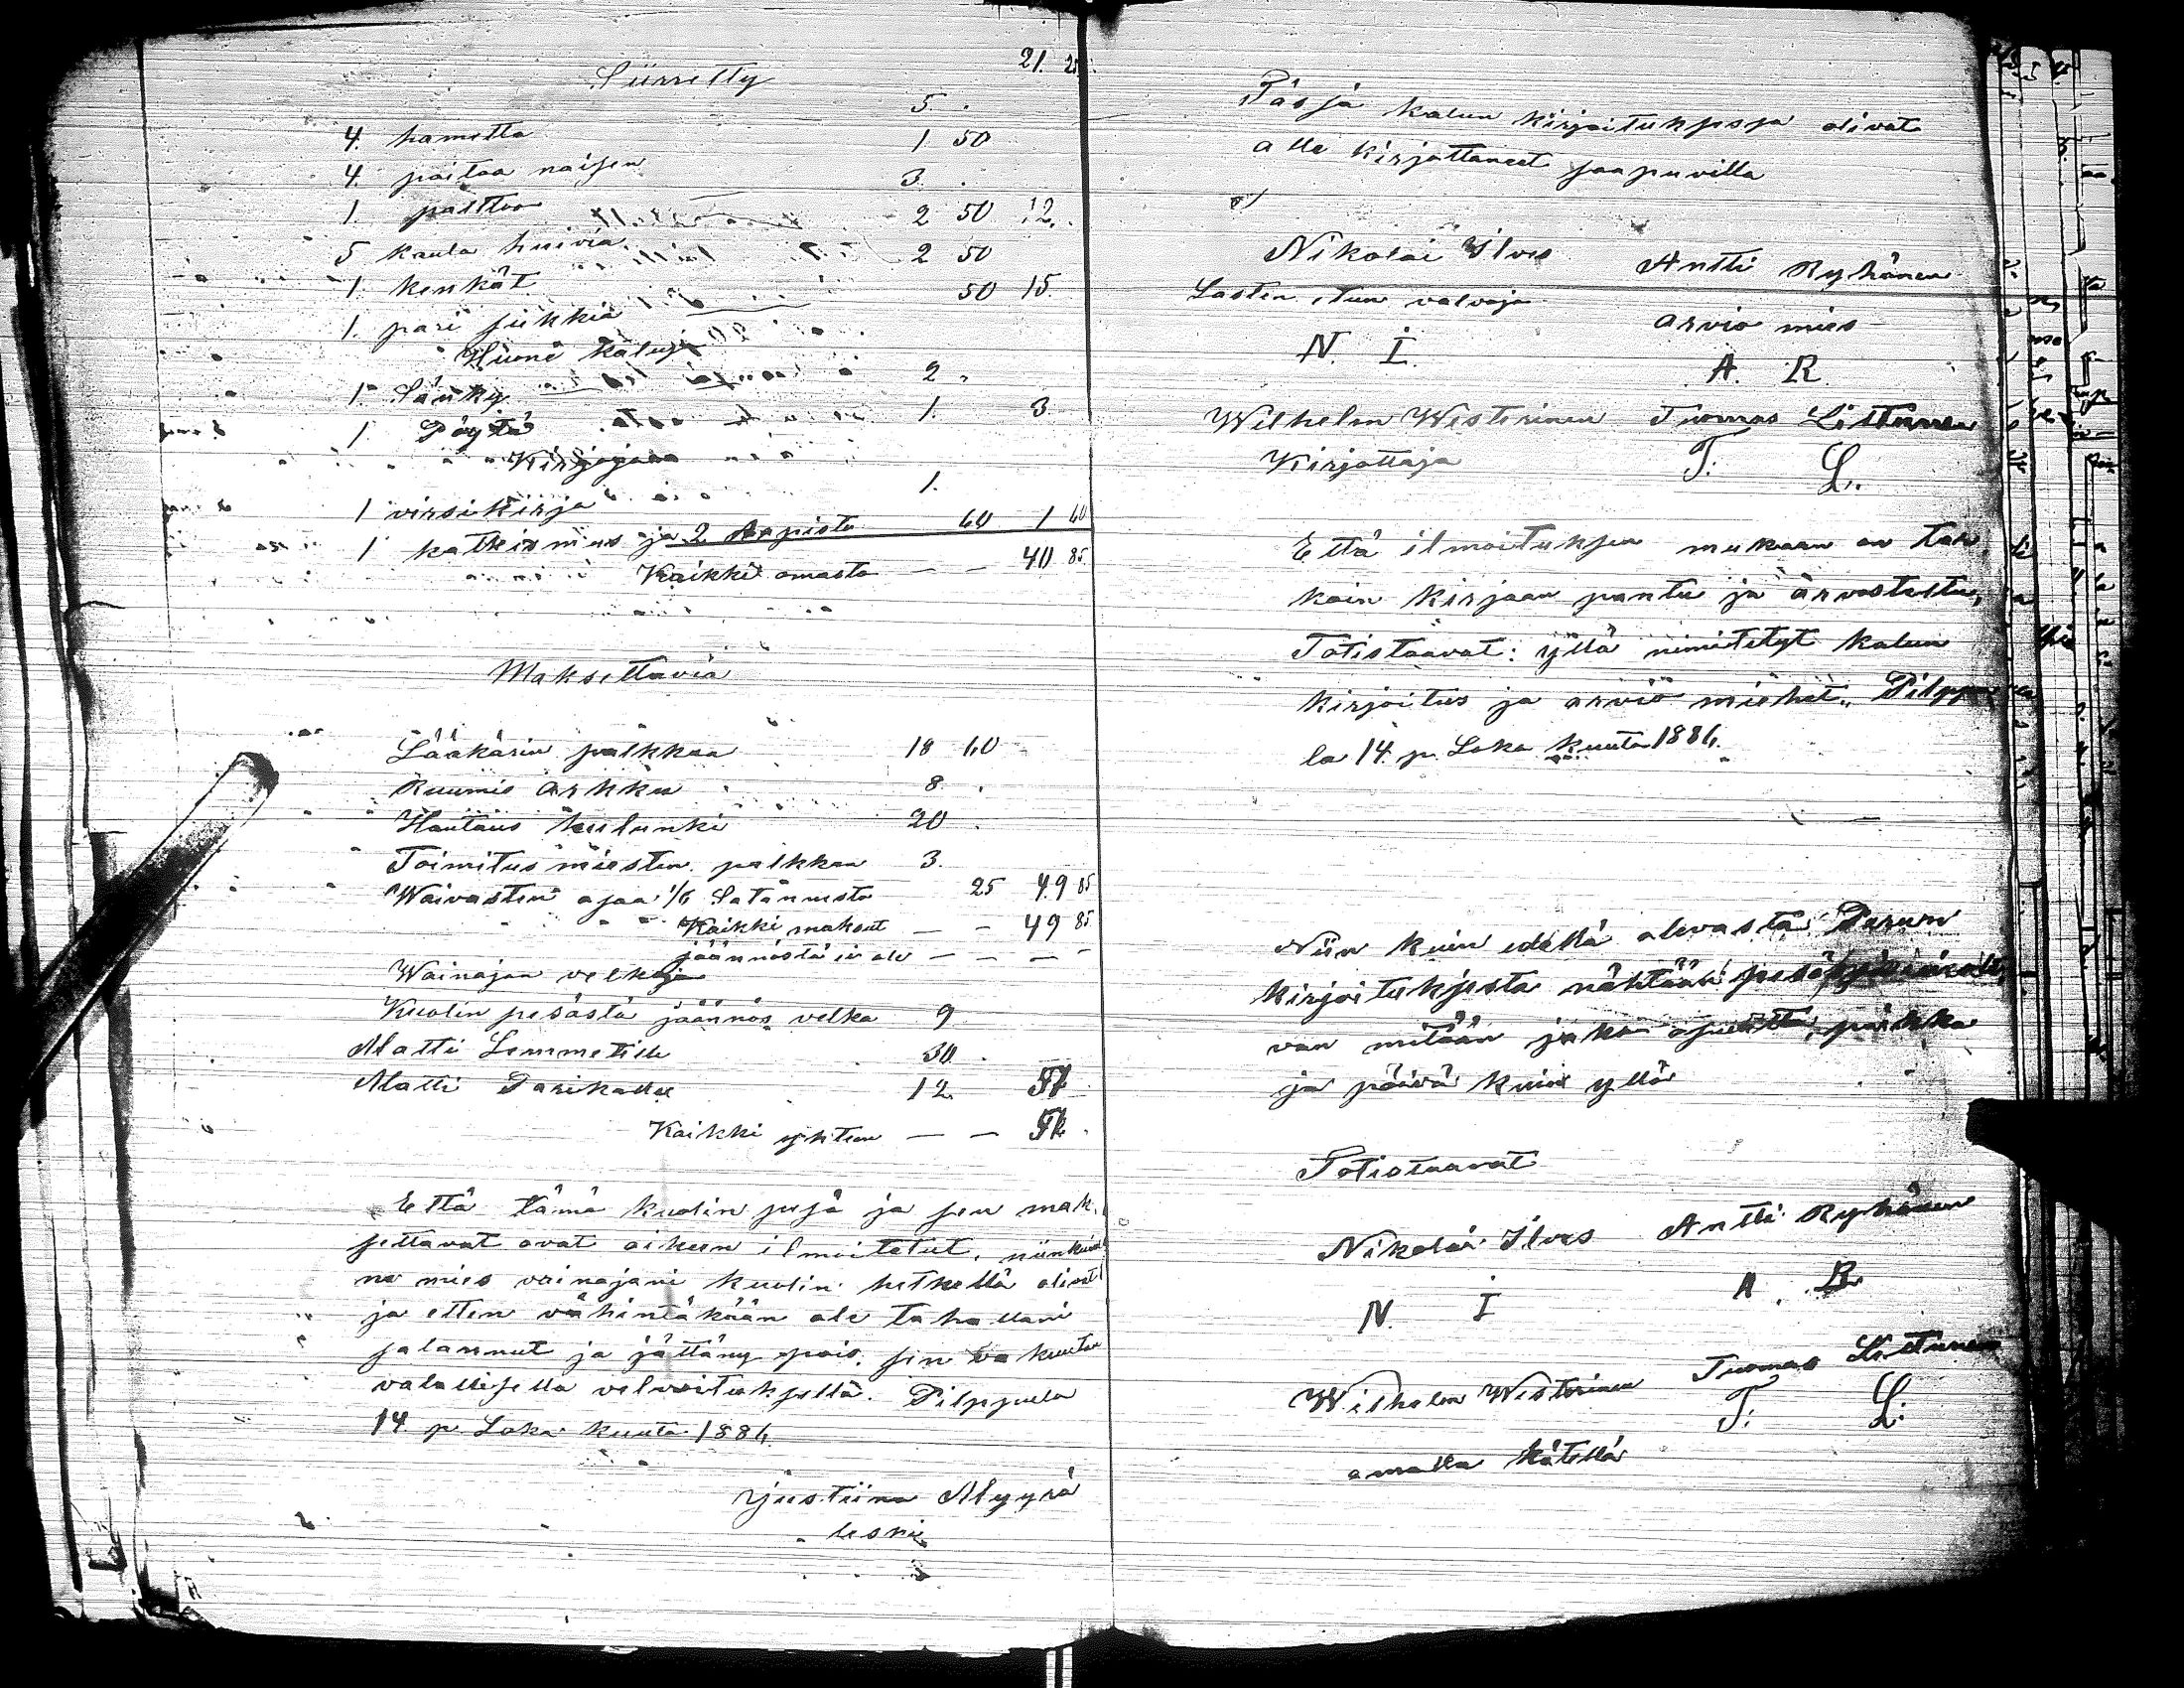 Siirretty 21. 25
4. hametta 5.
4. paitaa naisen 1 50
1. palttoo 3.
5 kaula huivia 2 50 12.
1. kenkät 2 50
1. pari sukkia 50 15
Huone kaluja
1. Sänky 2.
1. Pöytä 1. 3.
Kirjoja
1 virsikirja 1.
1 katkismus ja 2 Aapista 60 1 60
Kaikki omasta — — 40 85
Maksettavia
Lääkärin palkkaa 18 60
Ruumis arkku 8.
Hautaus kulunki 20.
Toimitus miesten palkkaa 3.
Waivasten ajaa 1/6 Satannesta 25 49 85
Kaikki maksut — — 49 85
jäännöstä ei ole — — — —
Wainajan velkoja
Kuolin pesästä jäännös velka 9
Matti Lemmetille 30.
Matti Parikalle 12.
Kaikki yhteen — —
Että tämä kuolin pesä ja sen mak-
settavat ovat oikeen ilmoitetut, niinkuin
ne mies vainajani kuolin hetkellä olivat
ja etten vähintäkään ole tahallani
salannut ja jättäny pois, sen vakuutan
valallisella velvoituksella. Pilppula
14 p. Loka kuuta 1886
Justiina Myyrä
leski
Täsjä kalun kirjoituksesa olivat
alle kirjottaneet saapuvilla
Nikolai Ilves Antti Ryhänen
Lasten etun valvoja arvio mies
N. I. A. R.
Wilhelm Westerinen Tuomas Littunen
Kirjottaja T. L.
Että ilmoituksen mukaan on tar-
koin kirjaan pantu ja arvosteltu,
Totistaavat: yllä nimitetyt kalun
kirjoitus ja arvio miehet. Pilppu
la 14. p. Loka kuuta 1886.
Niin kuin edellä olevasta Perun
kirjoituksesta nähtään
van mitään jako paikka
ja päivä kuin yllä
Totistaavat
Nikolai Ilves Antti Ryhänen
N. I A. R
Wilhelm Westerinen Tuomas Littunen
T. L.
omalla kätellä